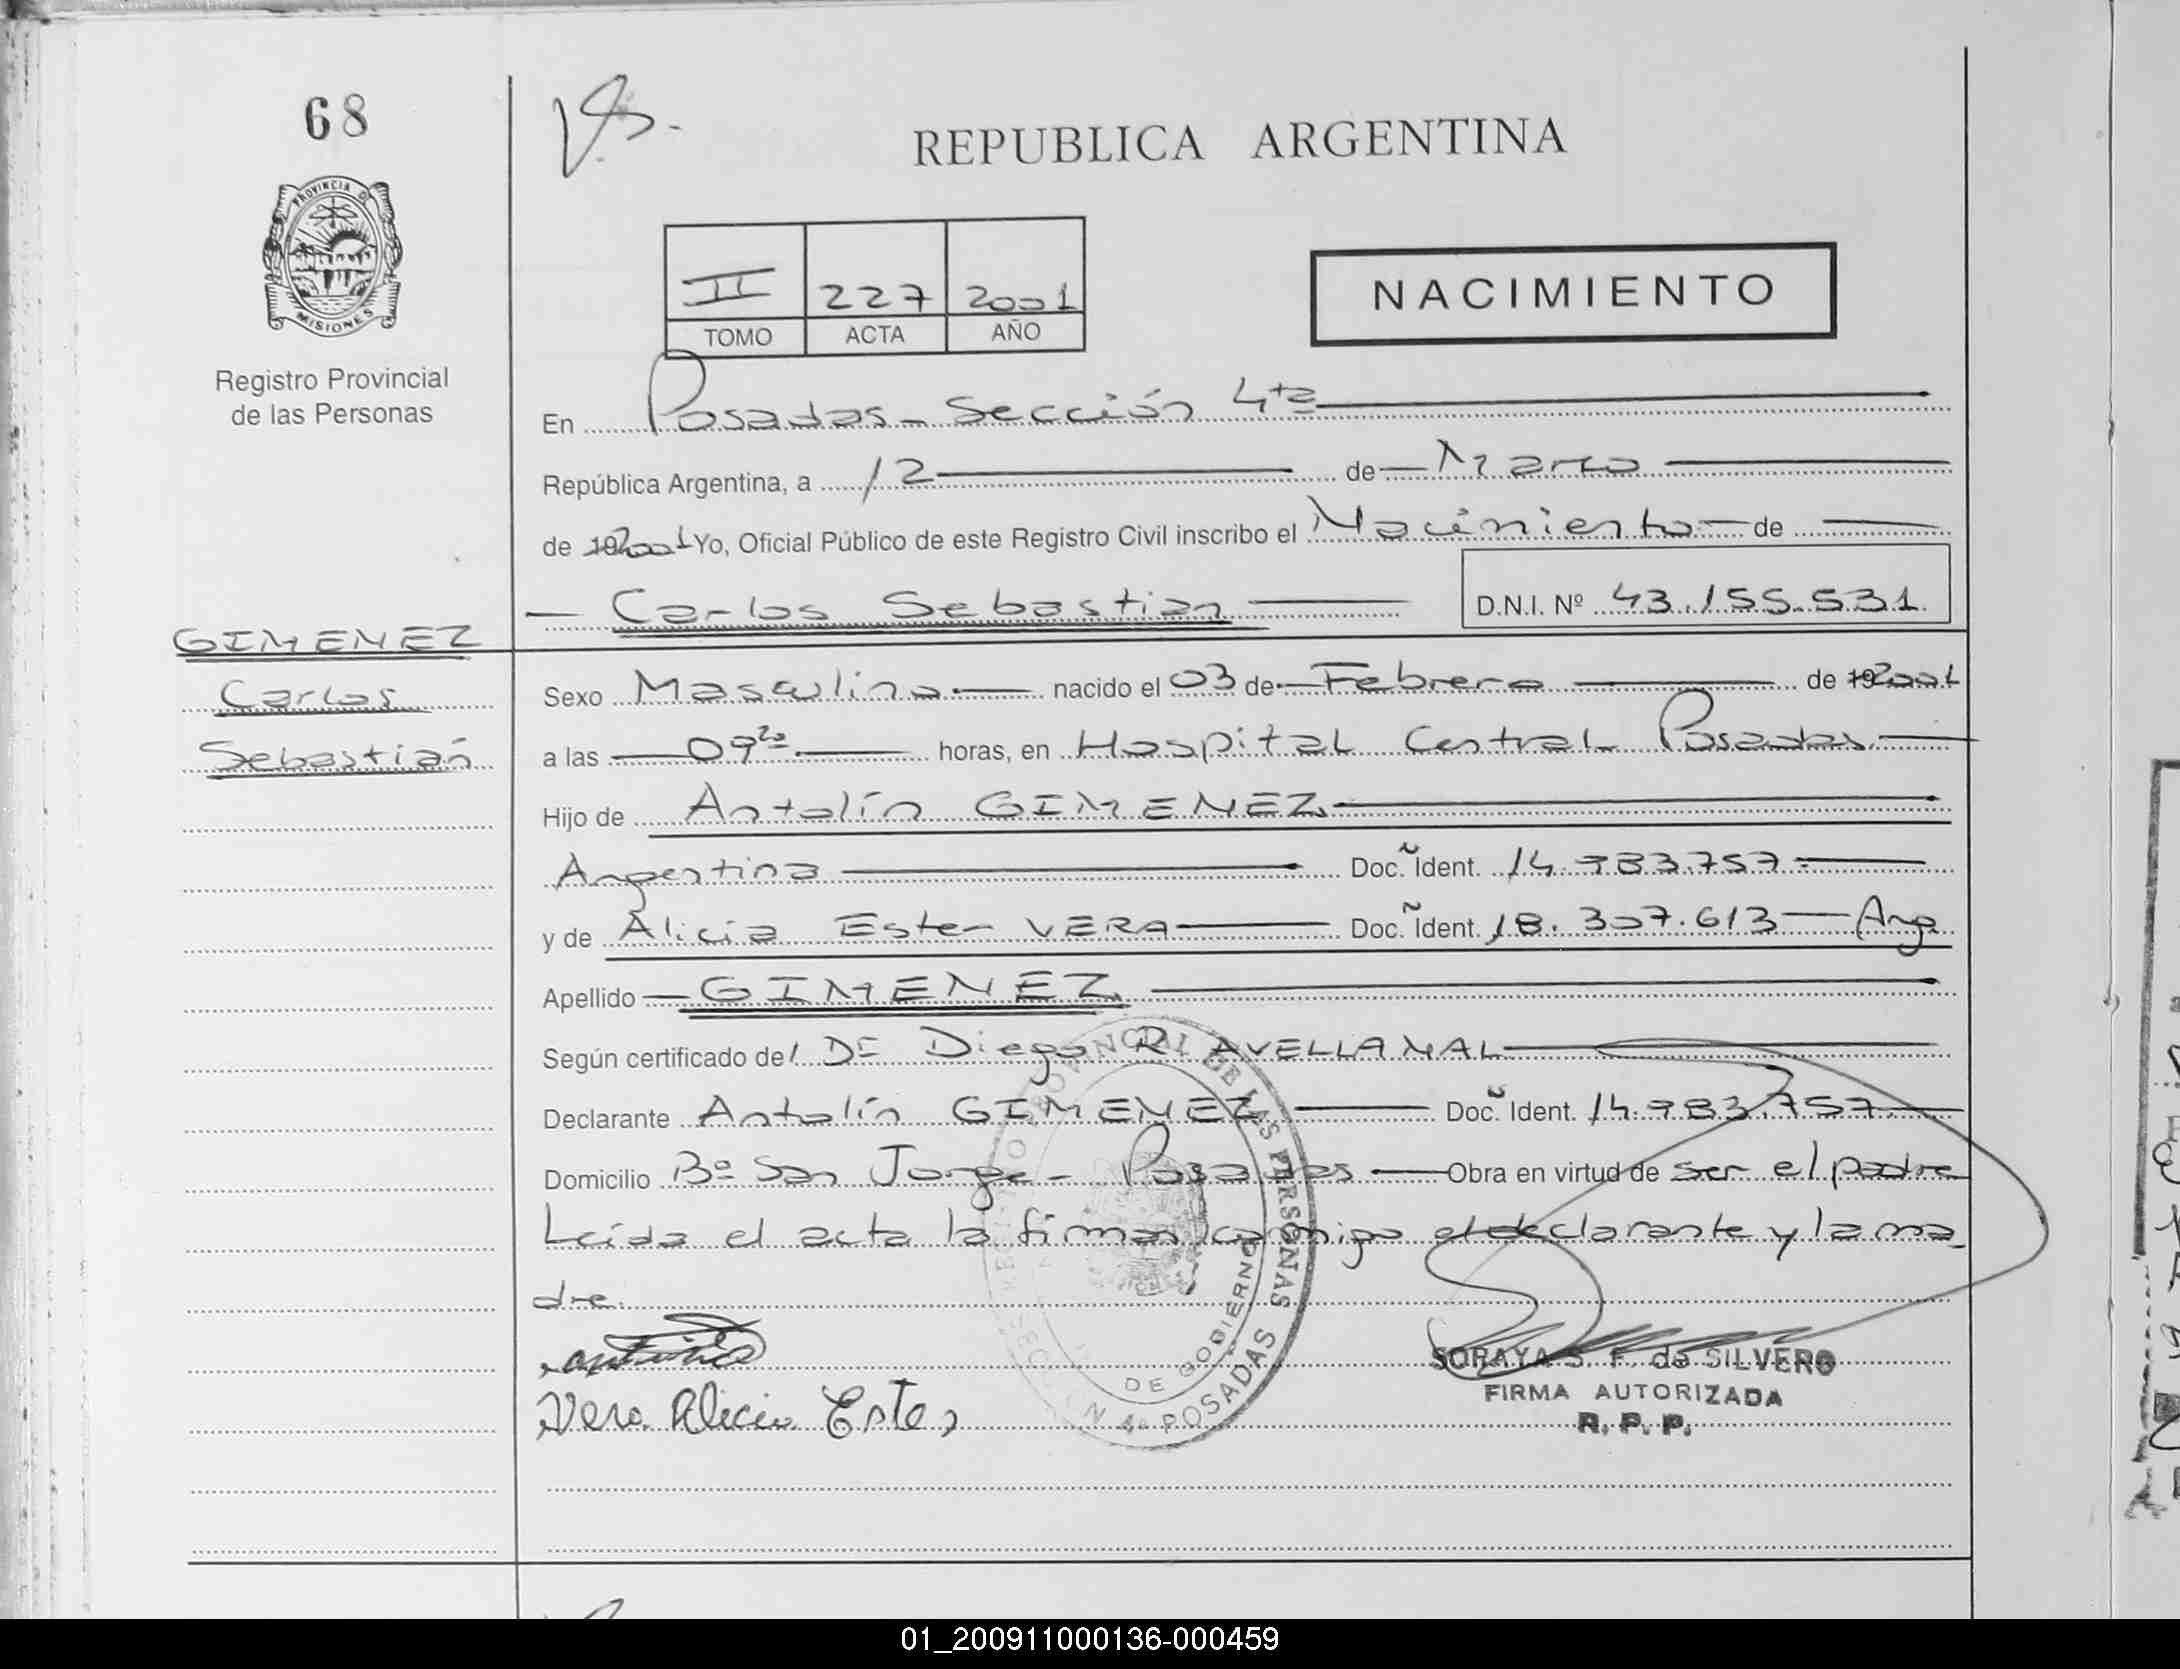 68
REPUBLICA ARGENTINA
PROVINCIA D
MISIONES
Registro Provincial
de las Personas
II 227 2001
TOMO ACTA AÑO
NACIMIENTO
En Posadas - Sección 4ta
República Argentina, a 12 de Marzo
de 192001 Yo, Oficial Público de este Registro Civil inscribo el Nacimiento de
Carlos Sebastian D.N.I. Nº 43.155.531
GIMENEZ
Carlos
Sebastián
Sexo Masculino nacido el 03 de Febrero de 192001
a las 0920 horas, en Hospital Central Posadas
Hijo de Antolín GIMENEZ
Argentina Doc. Ident. 14.783.757
y de Alicia Ester VERA Doc. Ident. 18.307.613 Arg
Apellido GIMENEZ
Según certificado del Dr Diego R AVELLANAL
Declarante Antolín GIMENEZ Doc. Ident. 14.783.757
Domicilio Bº San Jorge - Posadas Obra en virtud de ser el padre
Leída el acta la firman conmigo el declarante y la ma
dre.
Vera Alicia Ester
PROVINCIAL DE LAS PERSONAS
DE GOBIERNO
POSADAS
SORAYA S. F. de SILVERO
FIRMA AUTORIZADA
R. P. P.
01_200911000136-000459